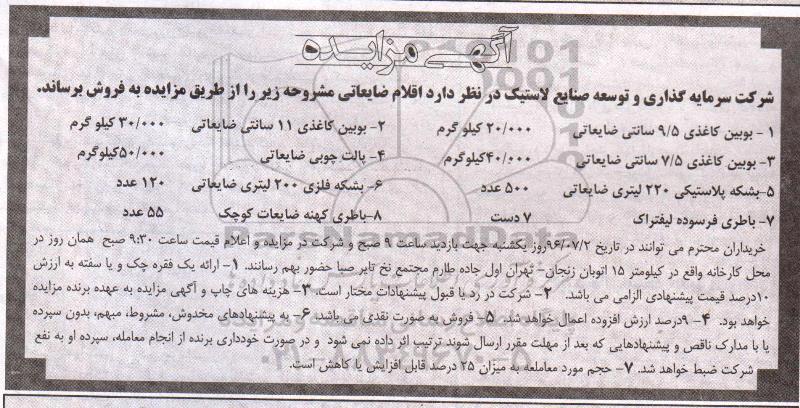 آگهی مزایده
شرکت سرمایه گذاری و توسعه صنایع لاستیک در نظر دارد اقلام ضایعاتی مشروحه زیر را از طریق مزایده به فروش برساند.
۱- بوبین کاغذی ۹/۵ سانتی ضایعاتی ۲۰/۰۰۰ کیلو گرم ۲- بوبین کاغذی ۱۱ سانتی ضایعاتی ۳۰/۰۰۰ کیلو گرم
۳- بوبین کاغذی ۷/۵ سانتی ضایعاتی ۴۰/۰۰۰کیلوگرم ۴- پالت چوبی ضایعاتی ۵۰/۰۰۰کیلوگرم
۵-بشکه پلاستیکی ۲۲۰ لیتری ضایعاتی ۵۰۰ عدد ۶- بشکه فلزی ۲۰۰ لیتری ضایعاتی ۱۲۰ عدد
۷- باطری فرسوده لیفتراک ۷ دست ۸-باطری کهنه ضایعات کوچک ۵۵ عدد
خریداران محترم می توانند در تاریخ ۹۶/۰۷/۲روز یکشنبه جهت بازدید ساعت ۹ صبح و شرکت در مزایده و اعلام قیمت ساعت ۹:۳۰ صبح همان روز در
محل کارخانه واقع در کیلومتر ۱۵ اتوبان زنجان- تهران اول جاده طارم مجتمع نخ تایر صبا حضور بهم رسانند. ۱- ارائه یک فقره چک و یا سفته به ارزش
۱۰درصد قیمت پیشنهادی الزامی می باشد. ۲- شرکت در رد یا قبول پیشنهادات مختار است. ۳- هزینه های چاپ و آگهی مزایده به عهده برنده مزایده
خواهد بود. ۴- ۹درصد ارزش افزوده اعمال خواهد شد. ۵- فروش به صورت نقدی می باشد. ۶- به پیشنهادهای مخدوش، مشروط، مبهم، بدون سپرده
یا با مدارک ناقص و پیشنهادهایی که بعد از مهلت مقرر ارسال شوند ترتیب اثر داده نمی شود و در صورت خودداری برنده از انجام معامله، سپرده او به نفع
شرکت ضبط خواهد شد. ۷- حجم مورد معاملعه به میزان ۲۵ درصد قابل افزایش یا کاهش است.
ParsNamadData